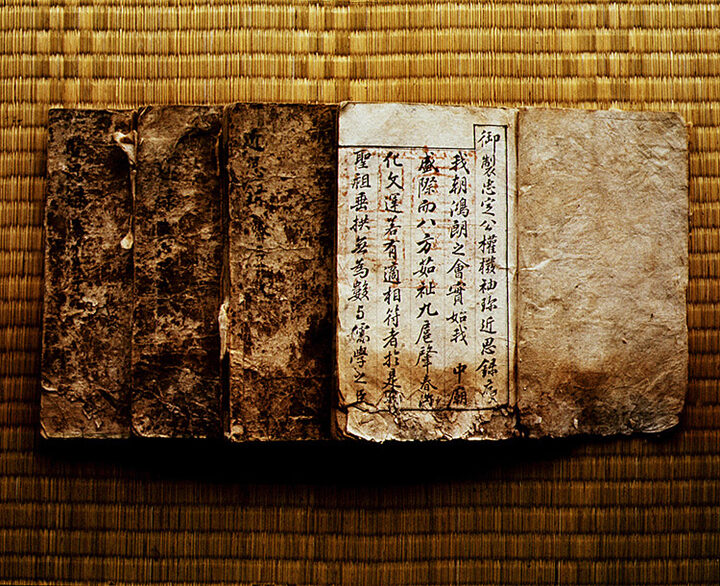 御製忠定公權橃袖珍近思錄序
我朝鴻朗之會實如我 中廟
盛際而八方茹祉九扈肇春
化文運若有適相符者於是我
聖祖垂拱無為數与儒學之臣
近思錄